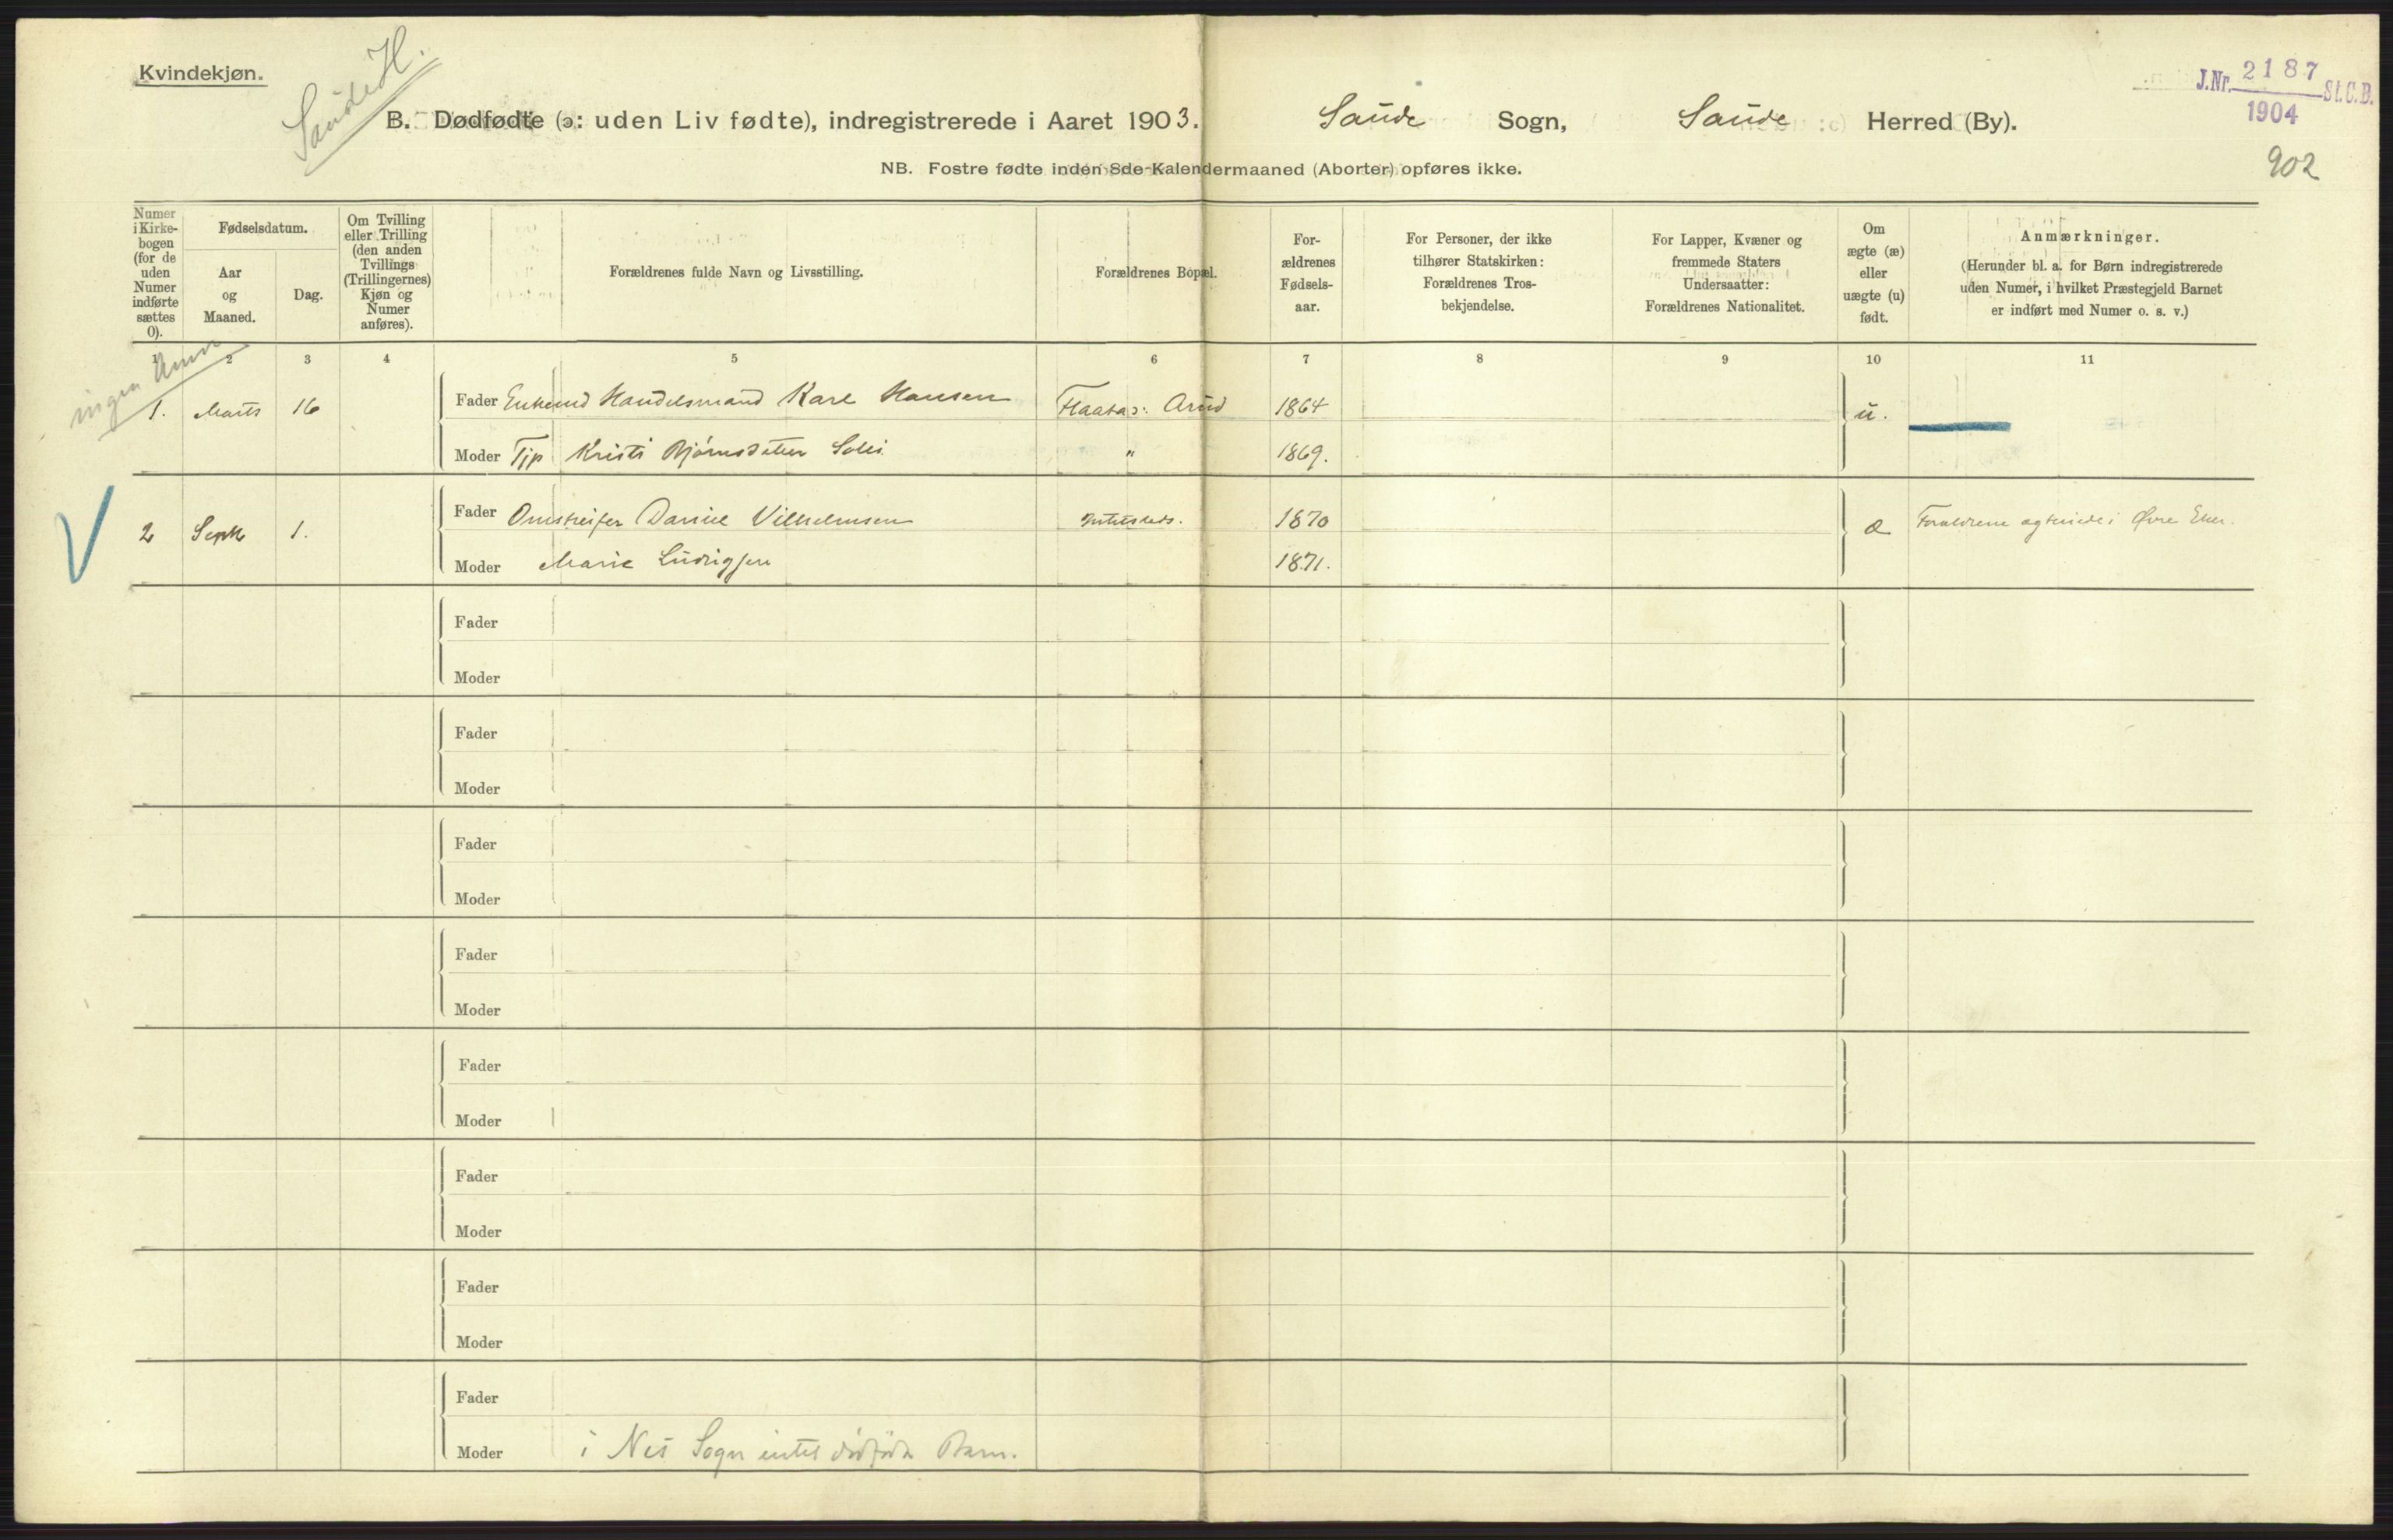 Kvindekjøn.
Saude H.
J.Nr. 2187 St.C.B.
1904
902
B. Dødfødte (ɔ: uden Liv fødte), indregistrerede i Aaret 1903. Saude Sogn, Saude Herred (By).
NB. Fostre fødte inden 8de Kalendermaaned (Aborter) opføres ikke.
Numer
i Kirke-
bogen
(for de
uden
Numer
indførte
sættes
0).
Fødselsdatum.
Aar
og
Maaned.
Dag.
Om Tvilling
eller Trilling
(den anden
Tvillings
(Trillingernes)
Kjøn og
Numer
anføres).
Forældrenes fulde Navn og Livsstilling.
Forældrenes Bopæl.
For-
ældrenes
Fødsels-
aar.
For Personer, der ikke
tilhører Statskirken:
Forældrenes Tros-
bekjendelse.
For Lapper, Kvæner og
fremmede Staters
Undersaatter:
Forældrenes Nationalitet.
Om
ægte (æ)
eller
uægte (u)
født.
Anmærkninger.
(Herunder bl. a. for Børn indregistrerede
uden Numer, i hvilket Præstegjeld Barnet
er indført med Numer o. s. v.)
1 2 3 4 5 6 7 8 9 10 11
ingen Anm
1. Marts 16 Fader Handelsmand Karl Hansen 1864 u.
Moder Tjp Kristi Bjørnsdatter " 1869.
2 Septb 1. Fader Omstreifer Daniel Vilhelmsen intetsteds. 1870 æ Forældrene ægteviede i Øvre Eker.
Moder Marie Ludvigsen 1871.
Fader
Moder
Fader
Moder
Fader
Moder
Fader
Moder
Fader
Moder
Fader
Moder
Fader
Moder
Fader
Moder i Nes Sogn intet dødfødt Barn.